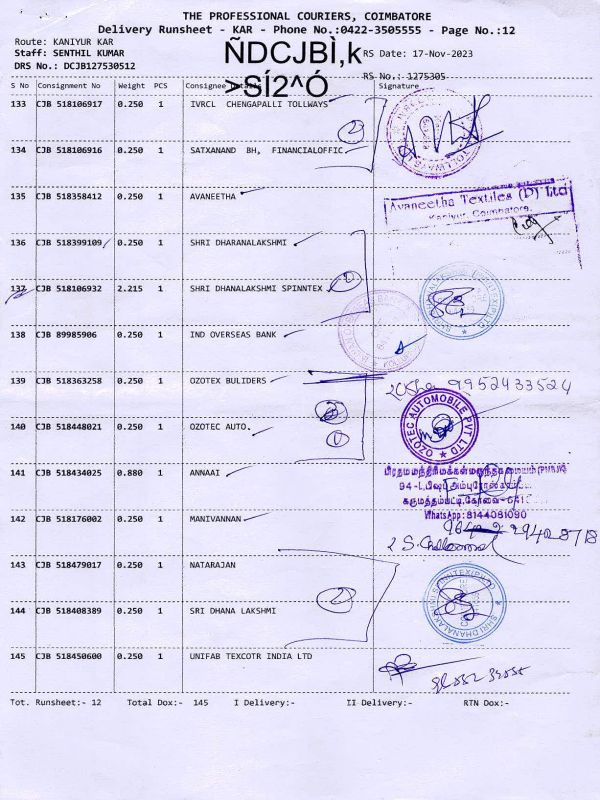 THE PROFESSIONAL COURIERS, COIMBATORE
Delivery Runsheet - KAR - Phone No.:0422-3505555 - Page No.:12
Route: KANIYUR KAR
Staff: SENTHIL KUMAR
ÑDCJBÌ,k
RS Date: 17-Nov-2023
DRS No.: DCJB127530512
>SÍ2^Ó
RS No.: 1275305
S No Consignment No Weight PCS Consignee Details Signature
133 CJB 518106917 0.250 1 IVRCL CHENGAPALLI TOLLWAYS
2
134 CJB 518106916 0.250 1 SATXANAND BH, FINANCIALOFFIC
135 CJB 518358412 0.250 1 AVANEETHA
Avaneetha Textiles (P) Ltd
Kaniyur, Coimbatore.
136 CJB 518399109 0.250 1 SHRI DHARANALAKSHMI
137 CJB 518106932 2.215 1 SHRI DHANALAKSHMI SPINNTEX
138 CJB 89985906 0.250 1 IND OVERSEAS BANK
139 CJB 518363258 0.250 1 OZOTEX BULIDERS
9952433524
OZOTEC AUTOMOBILE PVT LTD
140 CJB 518448021 0.250 1 OZOTEC AUTO.
1
141 CJB 518434025 0.880 1 ANNAAI
WhatsApp: 8144081090
142 CJB 518176002 0.250 1 MANIVANNAN
143 CJB 518479017 0.250 1 NATARAJAN
2
144 CJB 518408389 0.250 1 SRI DHANA LAKSHMI
145 CJB 518450600 0.250 1 UNIFAB TEXCOTR INDIA LTD
Tot. Runsheet:- 12 Total Dox:- 145 I Delivery:- II Delivery:- RTN Dox:-